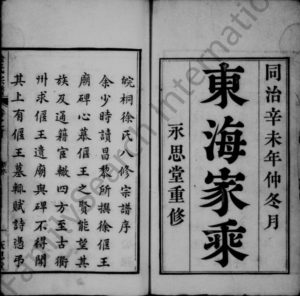 同治辛未年仲冬月
東海家乘
永思堂重修
皖桐徐氏八修宗譜序
余少時讀昌黎所撰徐偃王
廟碑心慕偃王之賢能望其
族及通籍宦轍四方至古衢
州求偃王遺廟與碑不得聞
其上有偃王墓輒賦詩憑弔
FamilySearch International